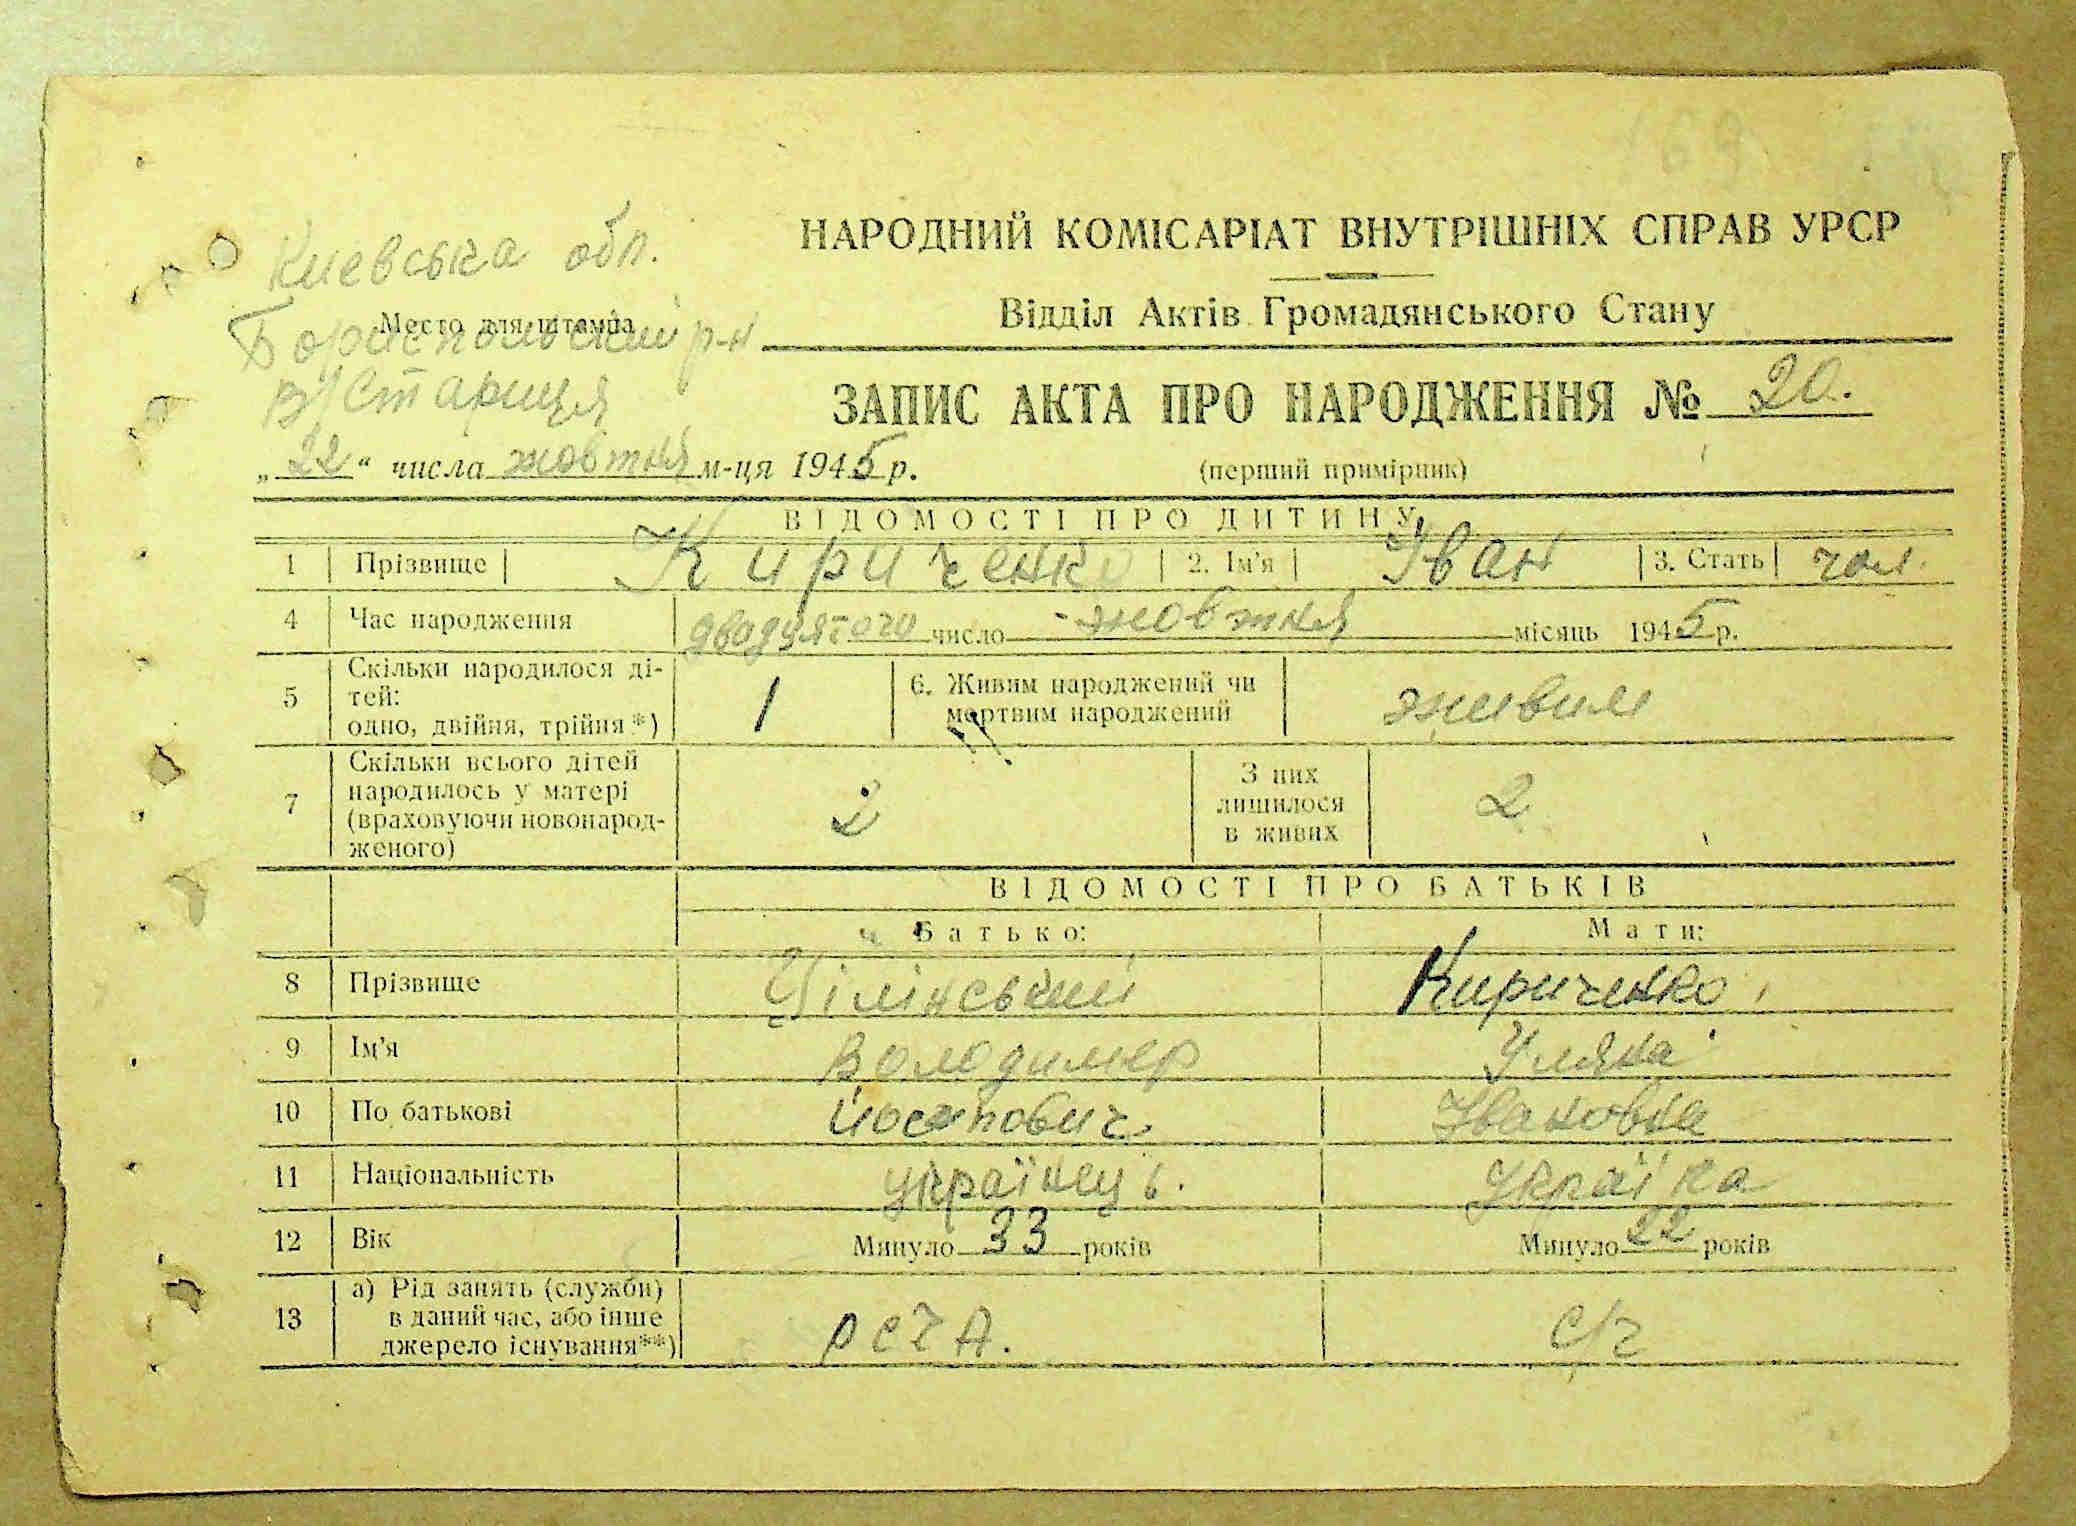 Киевська обл.
НАРОДНИЙ КОМІСАРІАТ ВНУТРІШНІХ СПРАВ УРСР
Место для штампа
Бориспольский р-н
Відділ Актів Громадянського Стану
В/Стариця
ЗАПИС АКТА ПРО НАРОДЖЕННЯ № 20.
„22“ числа жовтня м-ця 1945 р.
(перший примірник)
ВІДОМОСТІ ПРО ДИТИНУ
1 Прізвище Кириченко 2. Ім'я Іван 3. Стать чол.
4 Час народження двадцятого число жовтня місяць 1945 р.
5 Скільки народилося ді-
тей:
одно, двійня, трійня*) 1
6. Живим народжений чи
мертвим народжений живим
7 Скільки всього дітей
народилось у матері
(враховуючи новонарод-
женого) 2
З них
лишилося
в живих 2
ВІДОМОСТІ ПРО БАТЬКІВ
Батько: Мати:
8 Прізвище Цілінський Кириченко
9 Ім'я Володимер Уляна
10 По батькові Йосипович Ивановна
11 Національність українець. Українка
12 Вік Минуло 33 років Минуло 22 років
13 а) Рід занять (служби)
в даний час, або інше
джерело існування**) рсчА. с/г